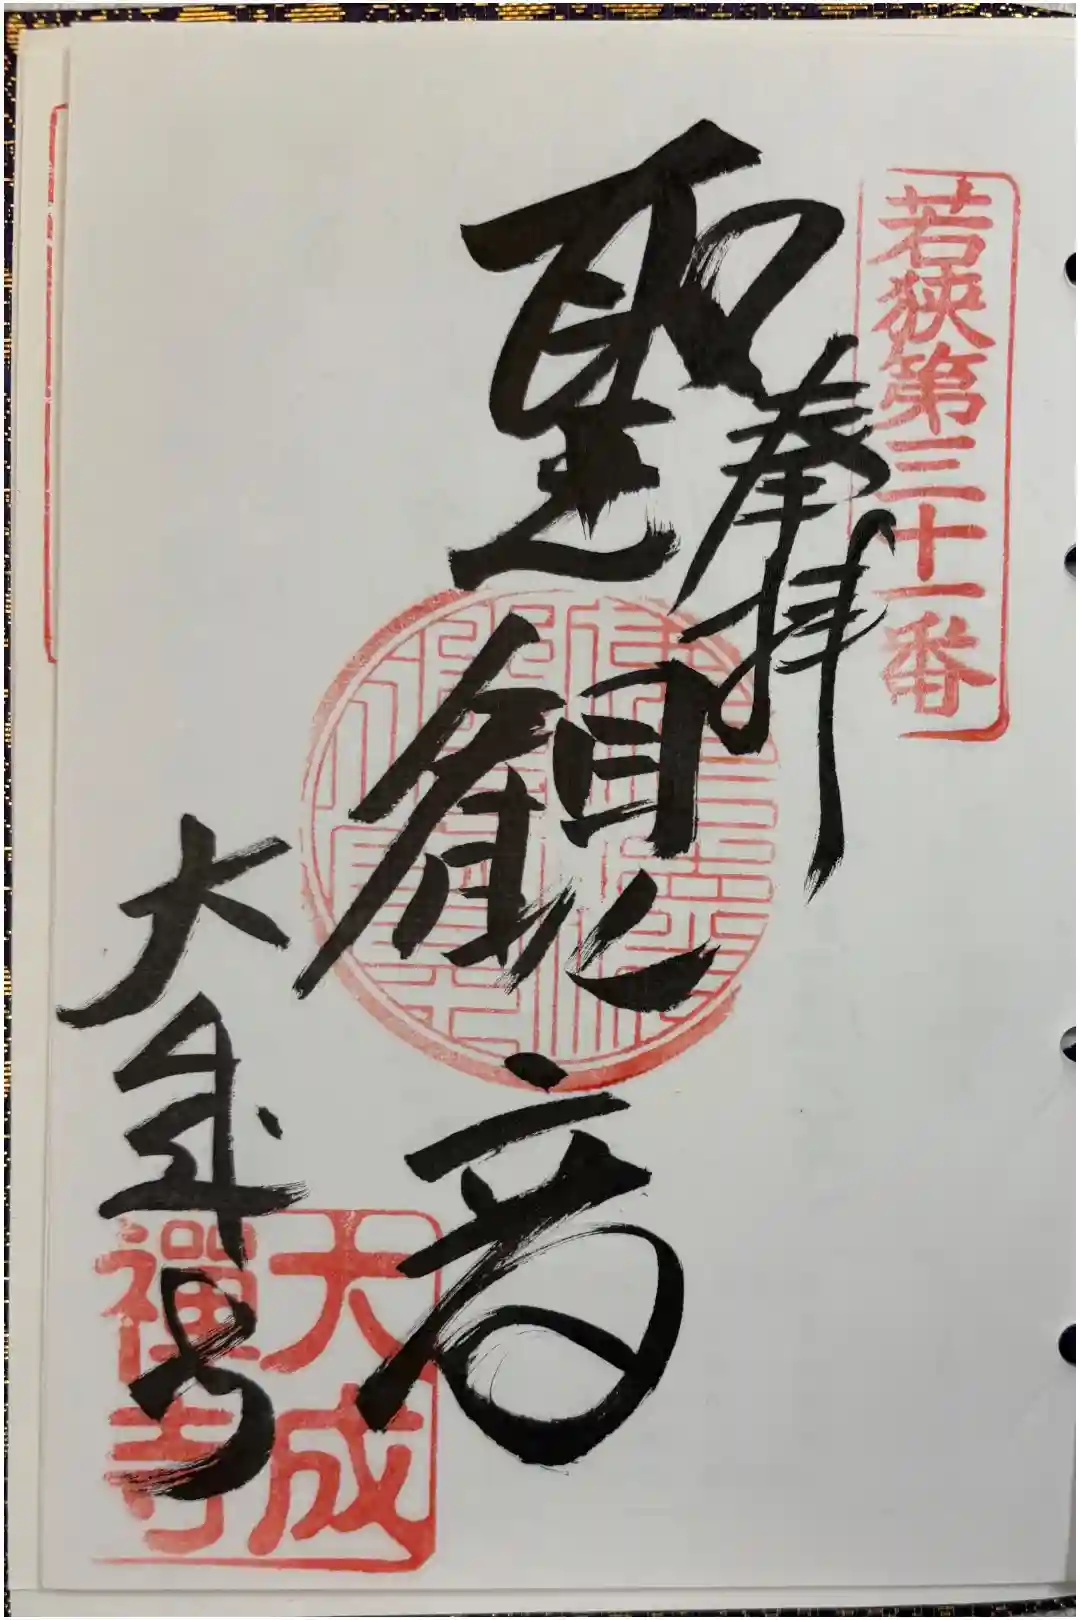 若狭第三十一番
奉拝
聖観音
大成寺
大成
禪寺